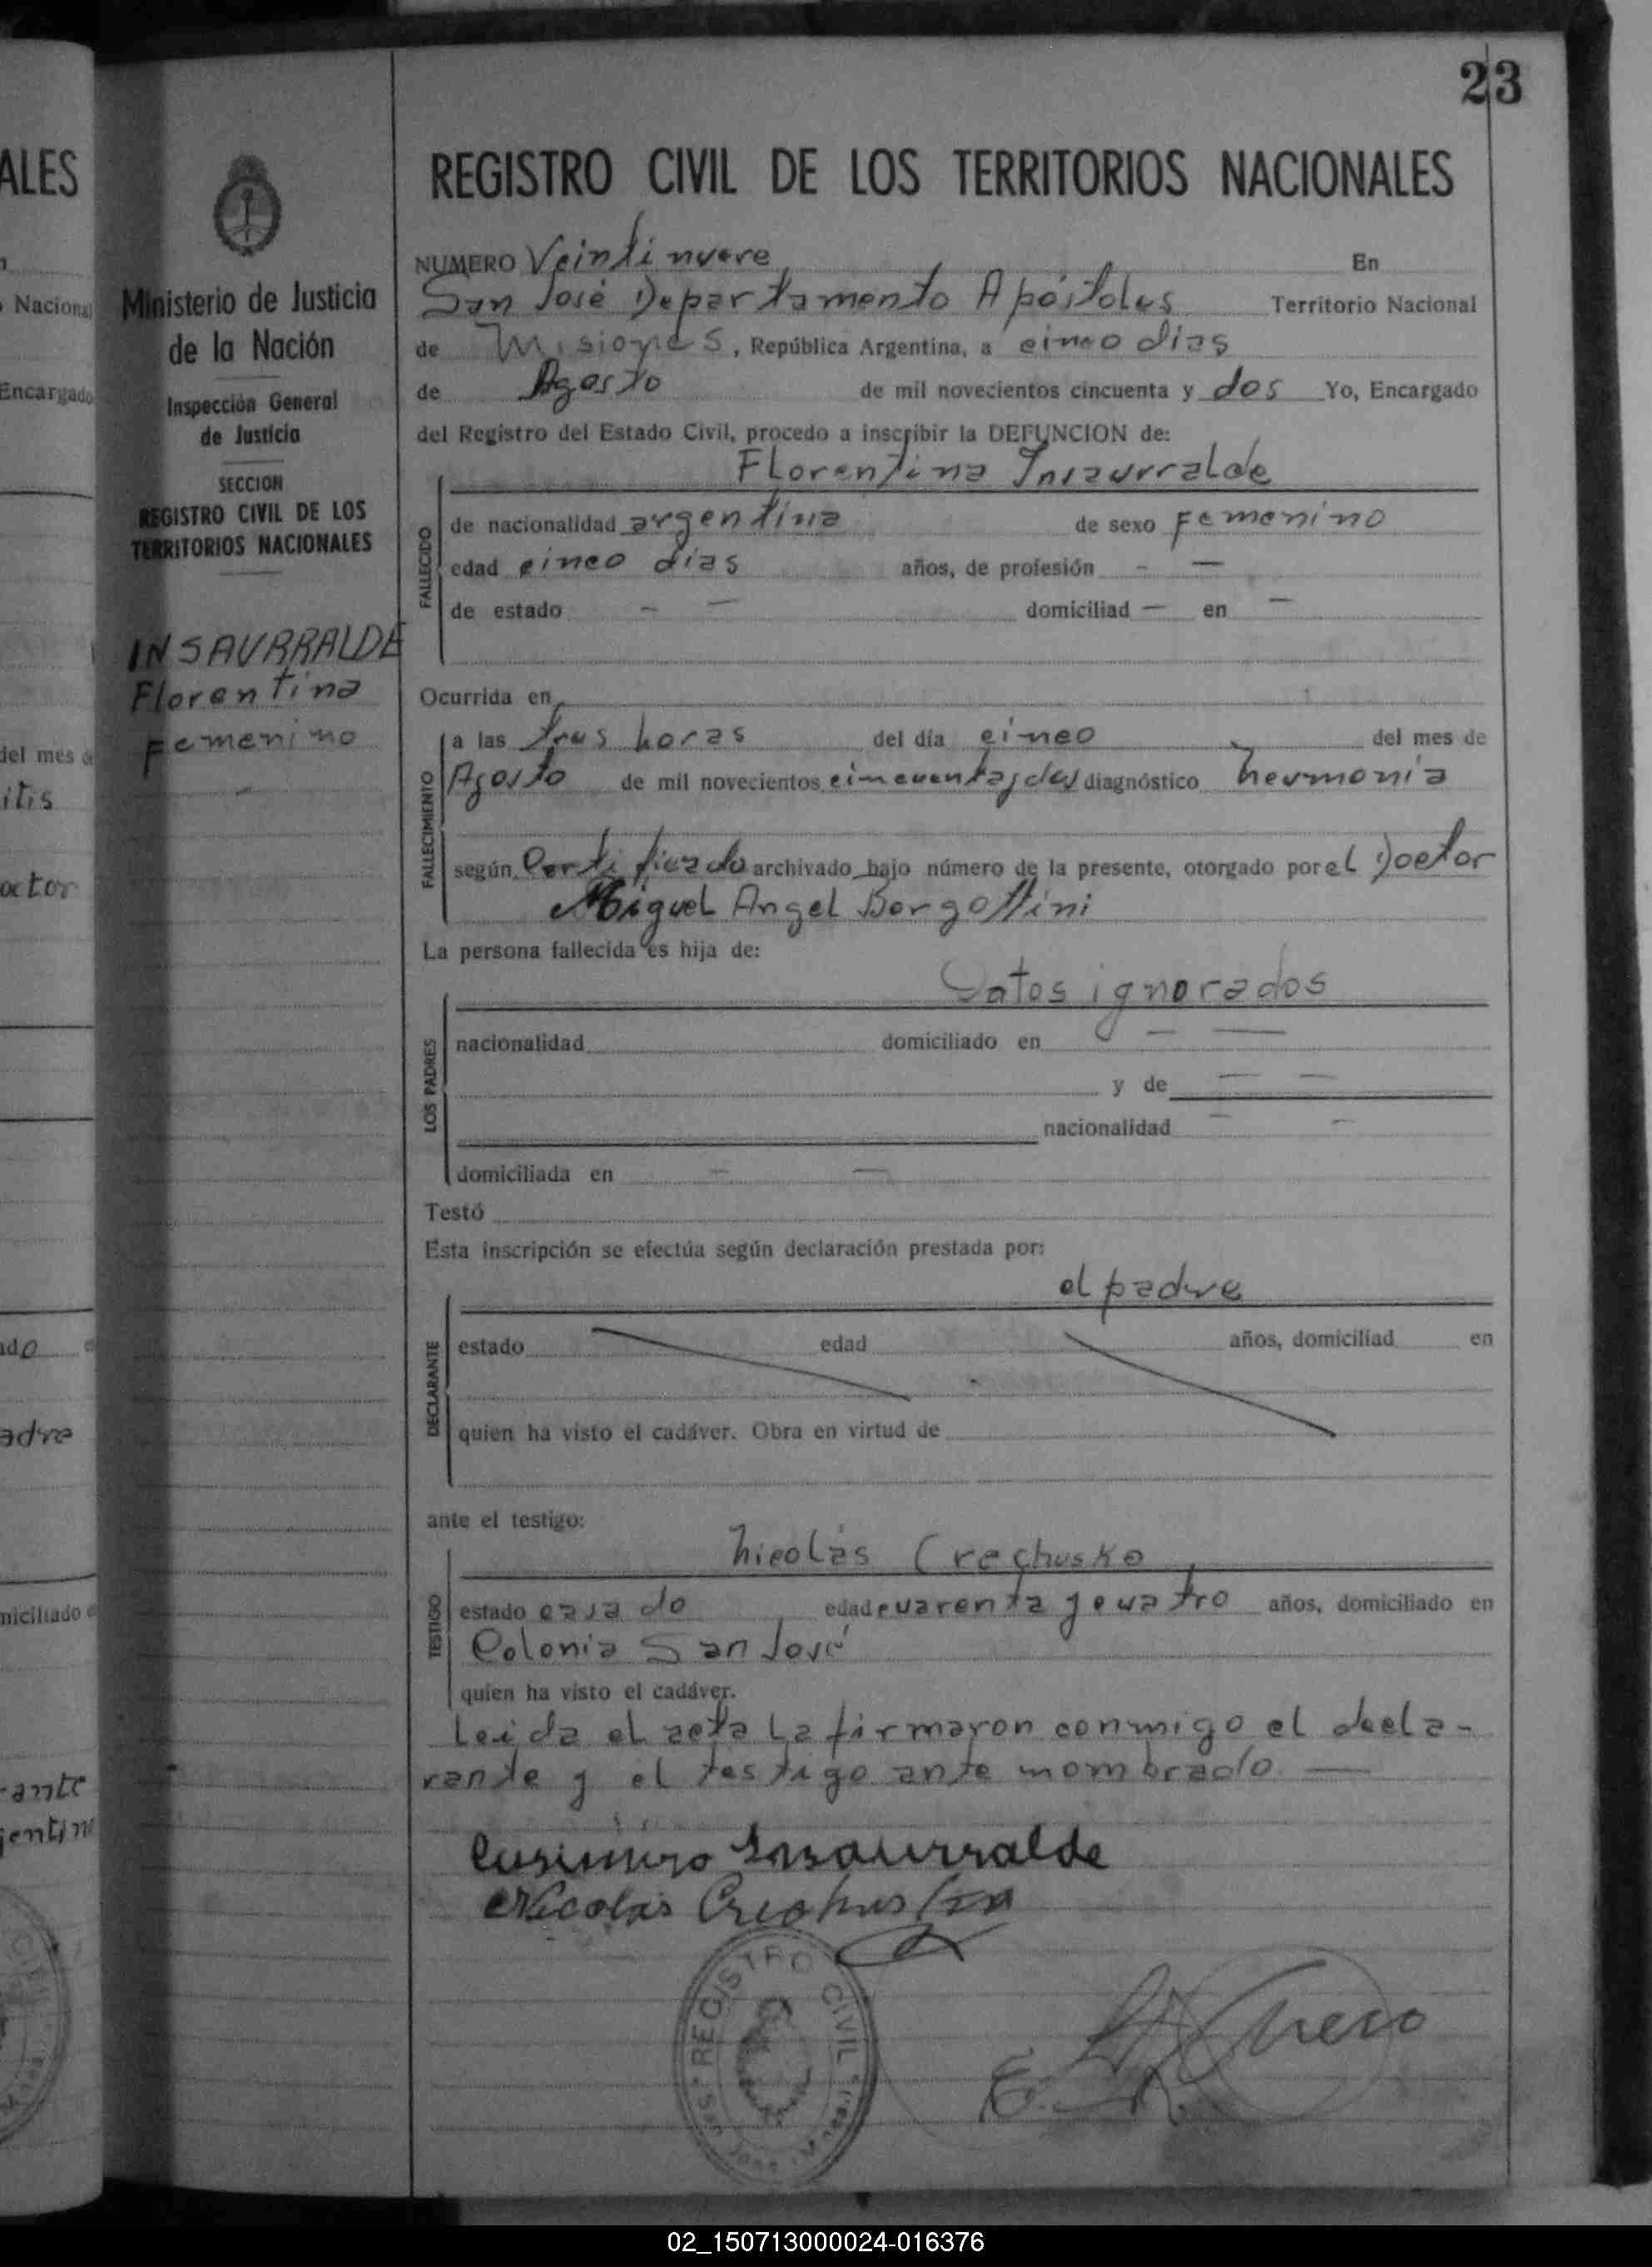 23
ALES
Nacional
Encargado
del mes d
itis
actor
ado
adre
miciliado e
rante
jentin
Ministerio de Justicia
de la Nación
Inspección General
de Justicia
SECCION
REGISTRO CIVIL DE LOS
TERRITORIOS NACIONALES
INSAURRALDE
Florentina
Femenino
REGISTRO CIVIL DE LOS TERRITORIOS NACIONALES
NUMERO Veintinueve En
San José Departamento Apóstoles Territorio Nacional
de Misiones, República Argentina, a cinco dias
de Agosto de mil novecientos cincuenta y dos Yo, Encargado
del Registro del Estado Civil, procedo a inscribir la DEFUNCION de:
Florentina Insaurralde
FALLECIDO
de nacionalidad argentina de sexo Femenino
edad cinco dias años, de profesión - —
de estado - — domiciliad — en —
Ocurrida en
FALLECIMIENTO
a las tres horas del día cinco del mes de
Agosto de mil novecientos cincuenta y dos diagnóstico neumonia
según Certificado archivado bajo número de la presente, otorgado por el Doctor
Miguel Angel Borgottini
La persona fallecida es hija de:
Datos ignorados
LOS PADRES
nacionalidad domiciliado en — —
y de — —
nacionalidad — -
domiciliada en — —
Testó
Esta inscripción se efectúa según declaración prestada por:
el padre
DECLARANTE
estado edad años, domiciliad en
quien ha visto el cadáver. Obra en virtud de
ante el testigo:
Nicolás Crechusko
TESTIGO
estado casado edad cuarenta y cuatro años, domiciliado en
Colonia San José
quien ha visto el cadáver.
Leida el acta la firmaron conmigo el decla-
rante y el testigo ante nombrado —
Insaurralde
Nicolas
REGISTRO CIVIL
02_150713000024-016376